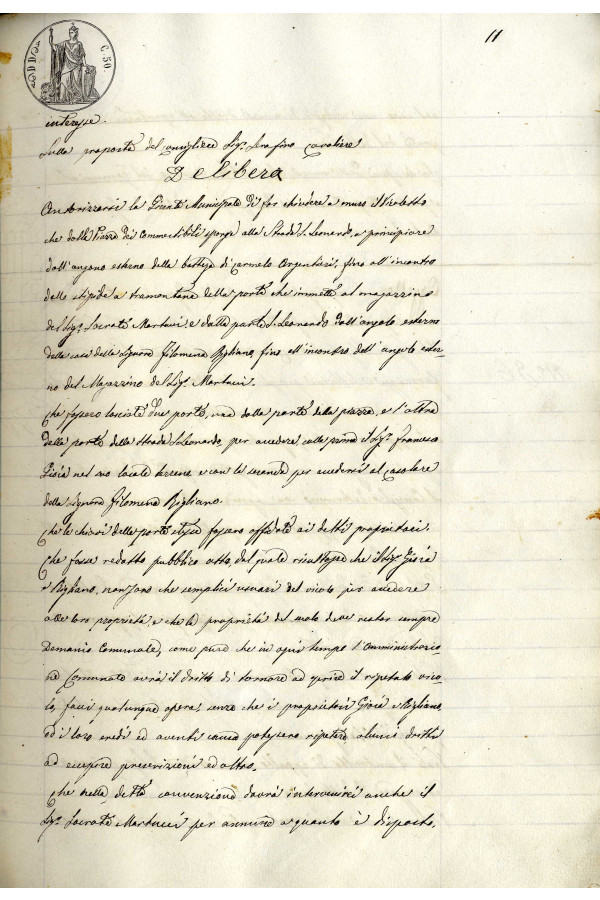 11
C. 50.
interesse.
Sulla proposta del consigliere Sig.r Serafino Cavaliere
Delibera
Autorizzarsi la Giunta Municipale di far chiudere a muro il Vicoletto
che dalla Piazza dei Commestibili sporge alla Strada S. Leonardo, e principiare
dall'angono esterno della bottega di Carmelo Argentieri, fino all'incontro
dello stipide a tramontana della porta che immette al magazzino
del Sig.r Socrate Martucci e dalla parte S. Leonardo dall'angolo esterno
della casa della Signora Filomena Bigliano, fino all'incontro dell'angolo ester-
no del Magazzino del Sig.r Martucci.
Che fossero lasciate due porte, una dalla parte della piazza, e l'altra
dalla parte della strada S. Leonardo, per accedere colla prima il Sig.r Francesco
Gioia nel suo locale terreno e con la seconda per accedersi al casolare
della Signora Filomena Bigliano.
Che le chiavi delle porte stesse fossero affidate ai detti proprietari.
Che fosse redatto pubblico atto, dal quale risultasse che il Sig.r Gioia
e Bigliano, non sono che semplici usuari del vicolo per accedere
alle loro proprietà e che la proprietà del suolo deve restar sempre
Demanio Comunale, come pure che in ogni tempo l'Amministrazio-
ne Comunale avrà il dritto di tornare ad aprire il ripetuto vico-
lo, farci qualunque opera, senza che i proprietari Gioia e Bigliano,
ed i loro eredi ed aventi causa potessero ripetere alcuni dritti
ad eccepire prescrizioni ed altro.
Che nella detta convenzione dovrà intervenirci anche il
Sig.r Socrate Martucci per annuire a quanto è disposto,